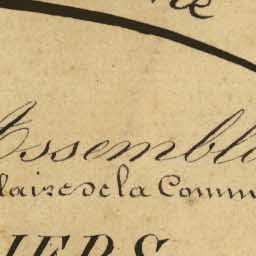 ne
Assembl
laire de la Comm
IERS